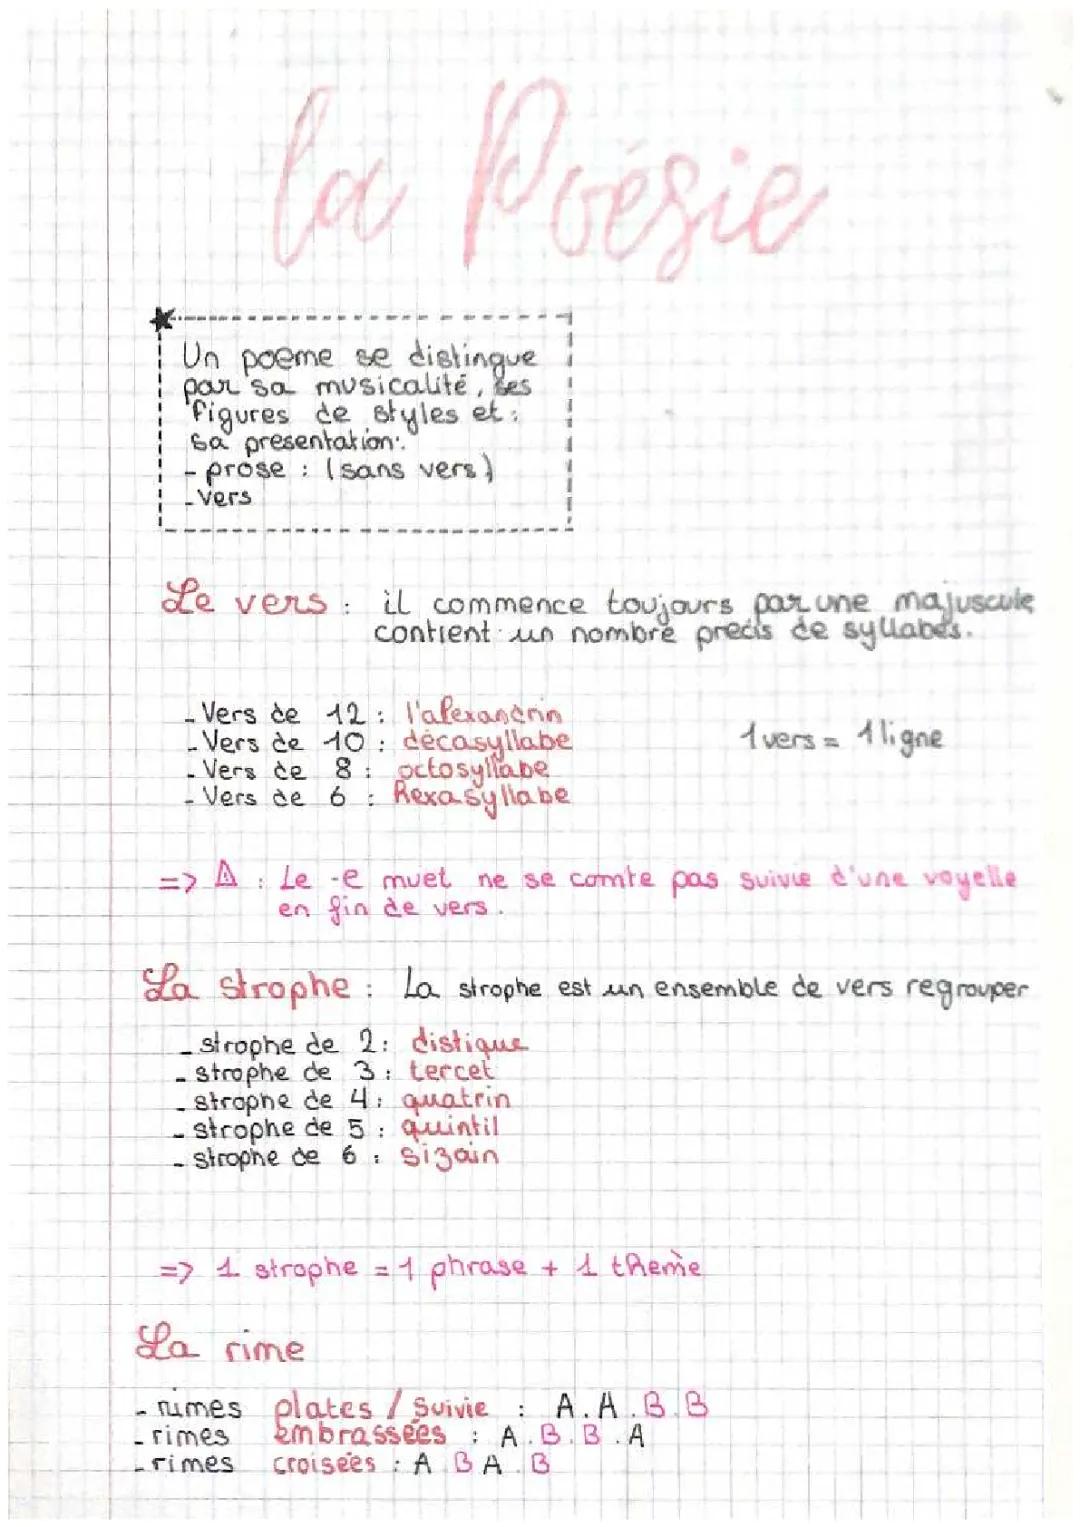 la Poésie
Un poeme se distingue
par sa musicalité, ses
figures de styles et :
sa presentation:
- prose : (sans vers)
- vers
Le vers : il commence toujours par une majuscule
contient un nombre precis de syllabes.
- Vers de 12 : l'alexandrin
- Vers de 10 : décasyllabe
- Vers de 8 : octosyllabe
- Vers de 6 : hexasyllabe
1 vers = 1 ligne
=> ⚠ : Le -e muet ne se comte pas suivie d'une voyelle
en fin de vers.
La strophe : La strophe est un ensemble de vers regrouper
- strophe de 2 : distique
- strophe de 3 : tercet
- strophe de 4 : quatrin
- strophe de 5 : quintil
- strophe de 6 : sizain
=> 1 strophe = 1 phrase + 1 theme
La rime
- rimes plates / suivie : A.A.B.B
- rimes embrassées : A.B.B.A
- rimes croisées : A B A.B